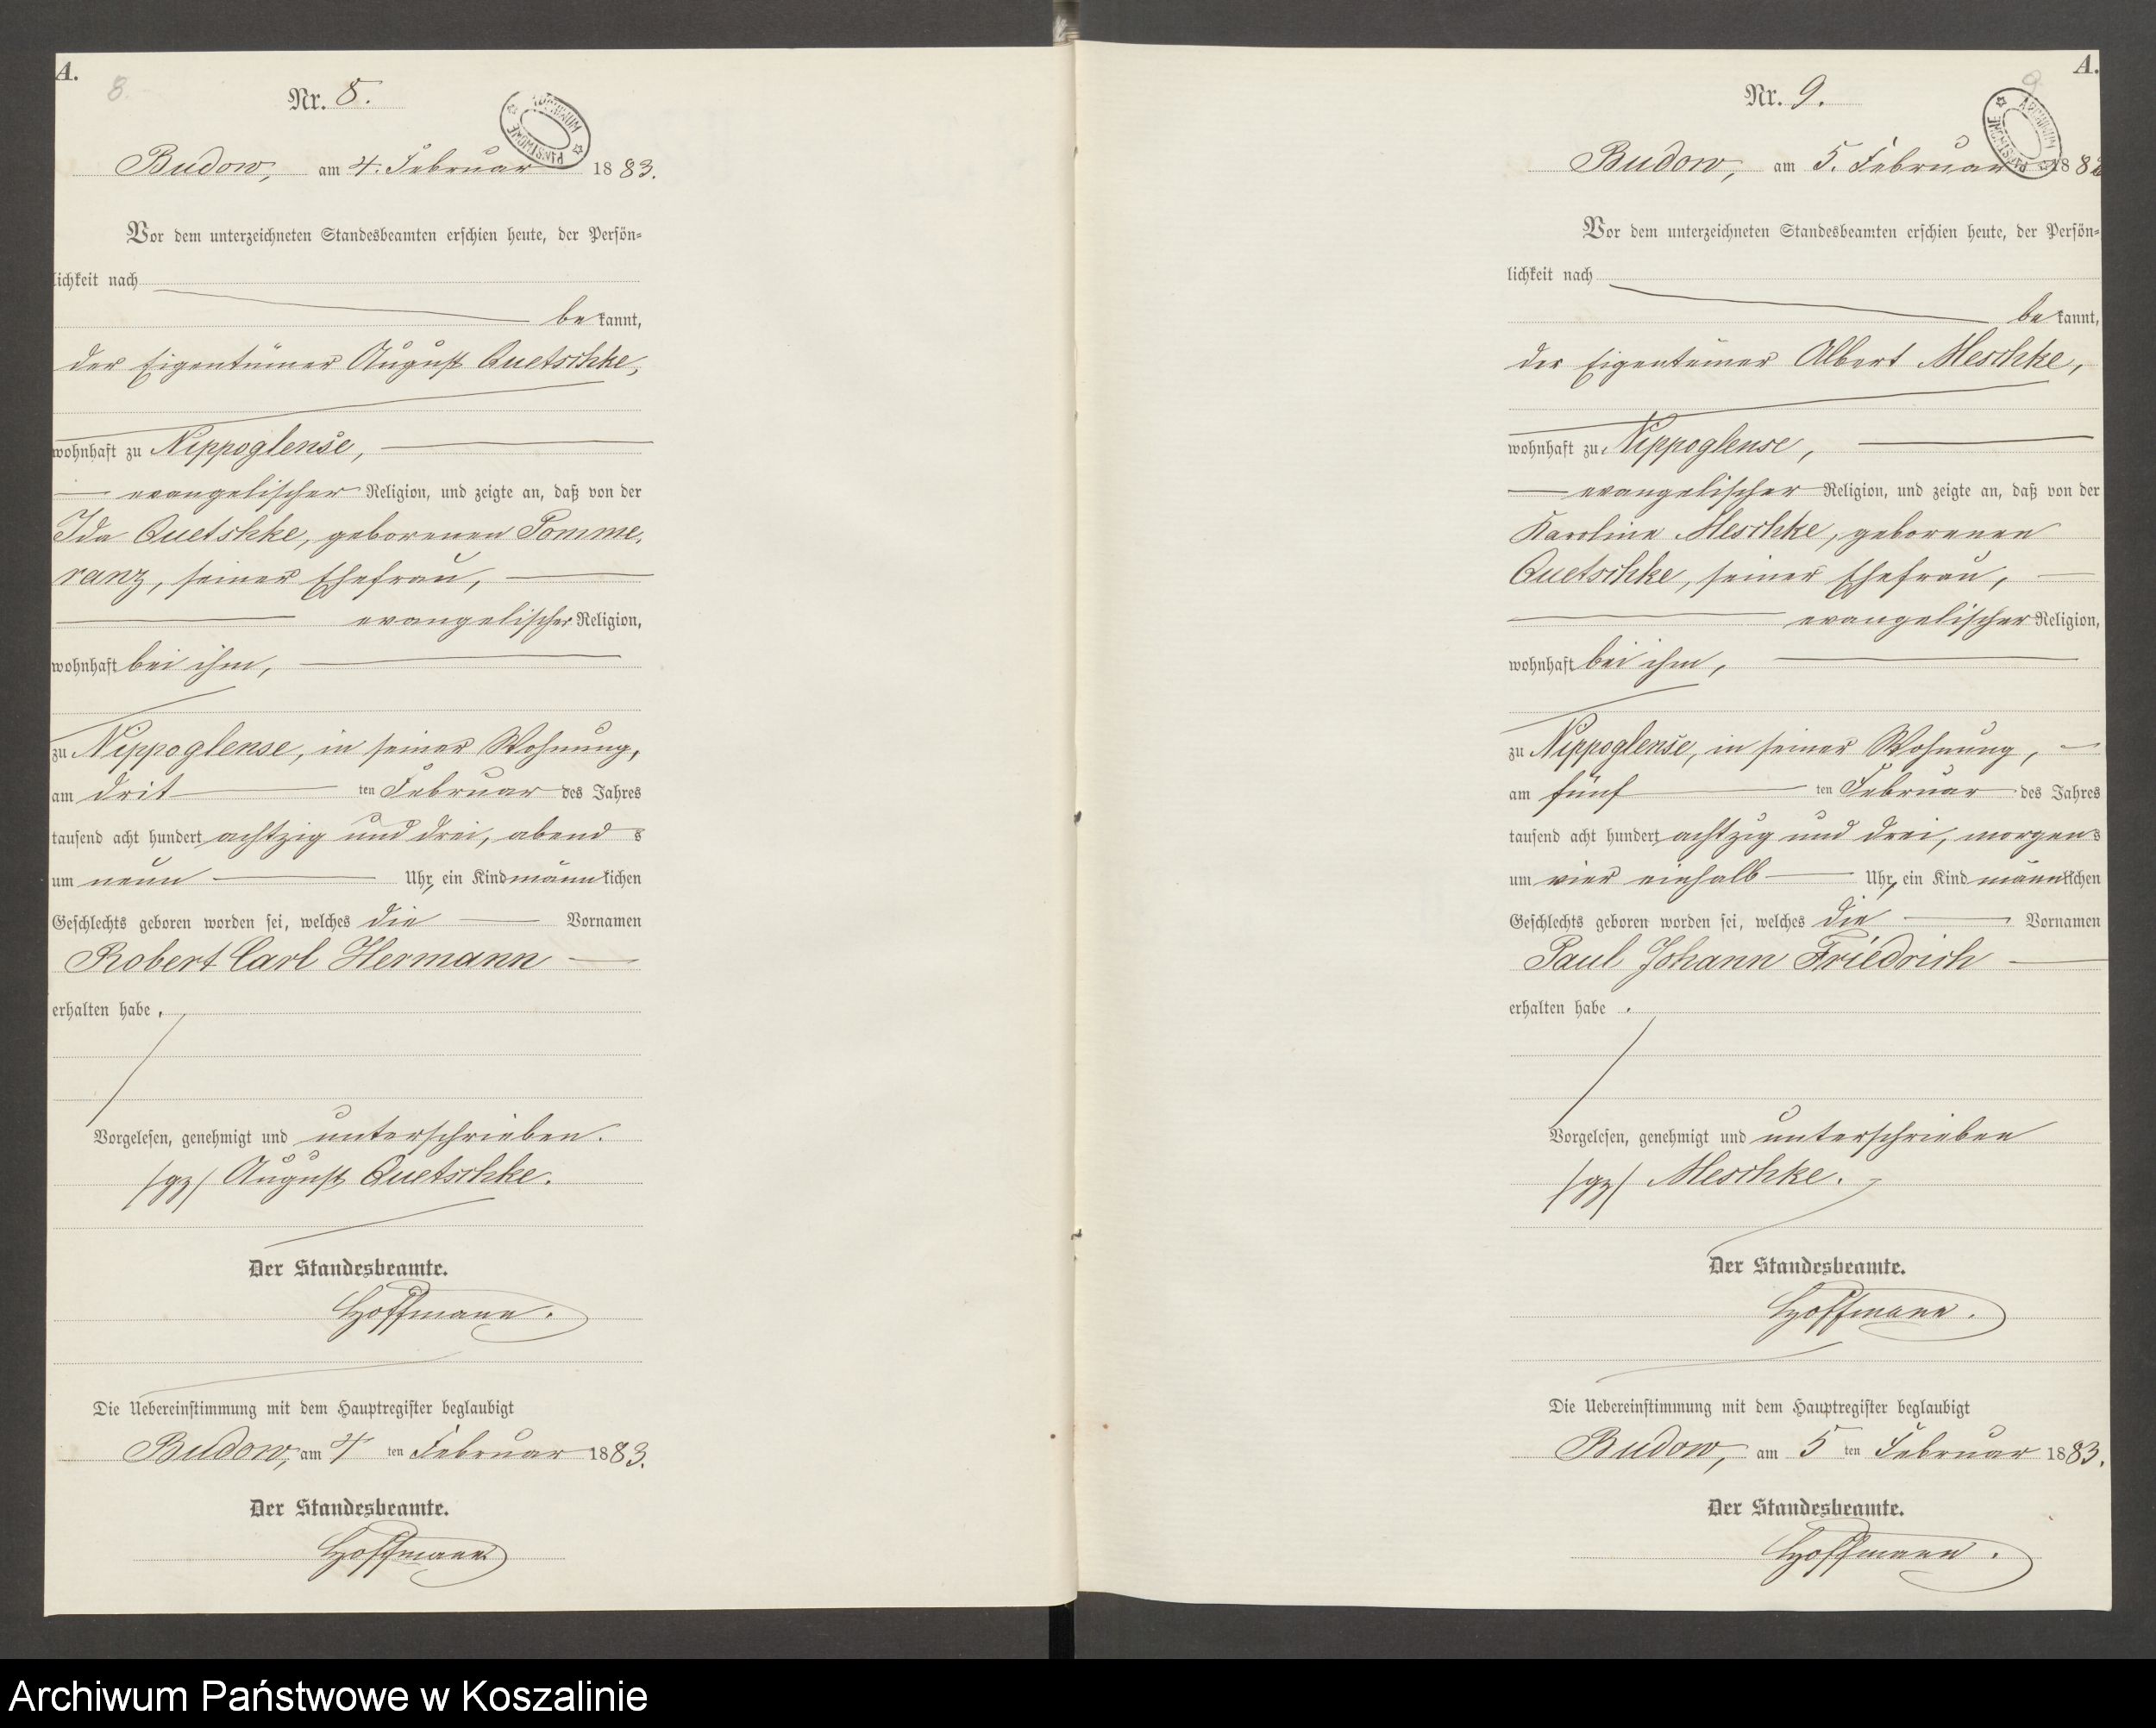 A.
8.
Nr. 8.
ARCHIWUM PAŃSTWOWE
Budow, am 4. Februar 1883.
Vor dem unterzeichneten Standesbeamten erschien heute, der Persön-
lichkeit nach
bekannt,
der Eigentümer August Quetschke,
wohnhaft zu Nippoglense,
evangelischer Religion, und zeigte an, daß von der
Ida Quetschke, geborenen Pomme-
ranz, seiner Ehefrau,
evangelischer Religion,
wohnhaft bei ihm,
zu Nippoglense, in seiner Wohnung,
am drit ten Februar des Jahres
tausend acht hundert achtzig und drei, abends
um neun Uhr, ein Kind männlichen
Geschlechts geboren worden sei, welches die Vornamen
Robert Carl Hermann
erhalten habe.
Vorgelesen, genehmigt und unterschrieben.
/gz/ August Quetschke.
Der Standesbeamte.
Hoffmann.
Die Uebereinstimmung mit dem Hauptregister beglaubigt
Budow, am 4 ten Februar 1883.
Der Standesbeamte.
Hoffmann
A.
9
Nr. 9.
ARCHIWUM PAŃSTWOWE
Budow, am 5. Februar 188
Vor dem unterzeichneten Standesbeamten erschien heute, der Persön-
lichkeit nach
bekannt,
der Eigentümer Albert Meschke,
wohnhaft zu Nippoglense,
evangelischer Religion, und zeigte an, daß von der
Karoline Meschke, geborenen
Quetschke, seiner Ehefrau,
evangelischer Religion,
wohnhaft bei ihm,
zu Nippoglense, in seiner Wohnung,
am fünf ten Februar des Jahres
tausend acht hundert achtzig und drei, morgens
um vier einhalb Uhr, ein Kind männlichen
Geschlechts geboren worden sei, welches die Vornamen
Paul Johann Friedrich
erhalten habe.
Vorgelesen, genehmigt und unterschrieben
/gz/ Meschke.
Der Standesbeamte.
Hoffmann.
Die Uebereinstimmung mit dem Hauptregister beglaubigt
Budow, am 5 ten Februar 1883.
Der Standesbeamte.
Hoffmann.
Archiwum Państwowe w Koszalinie